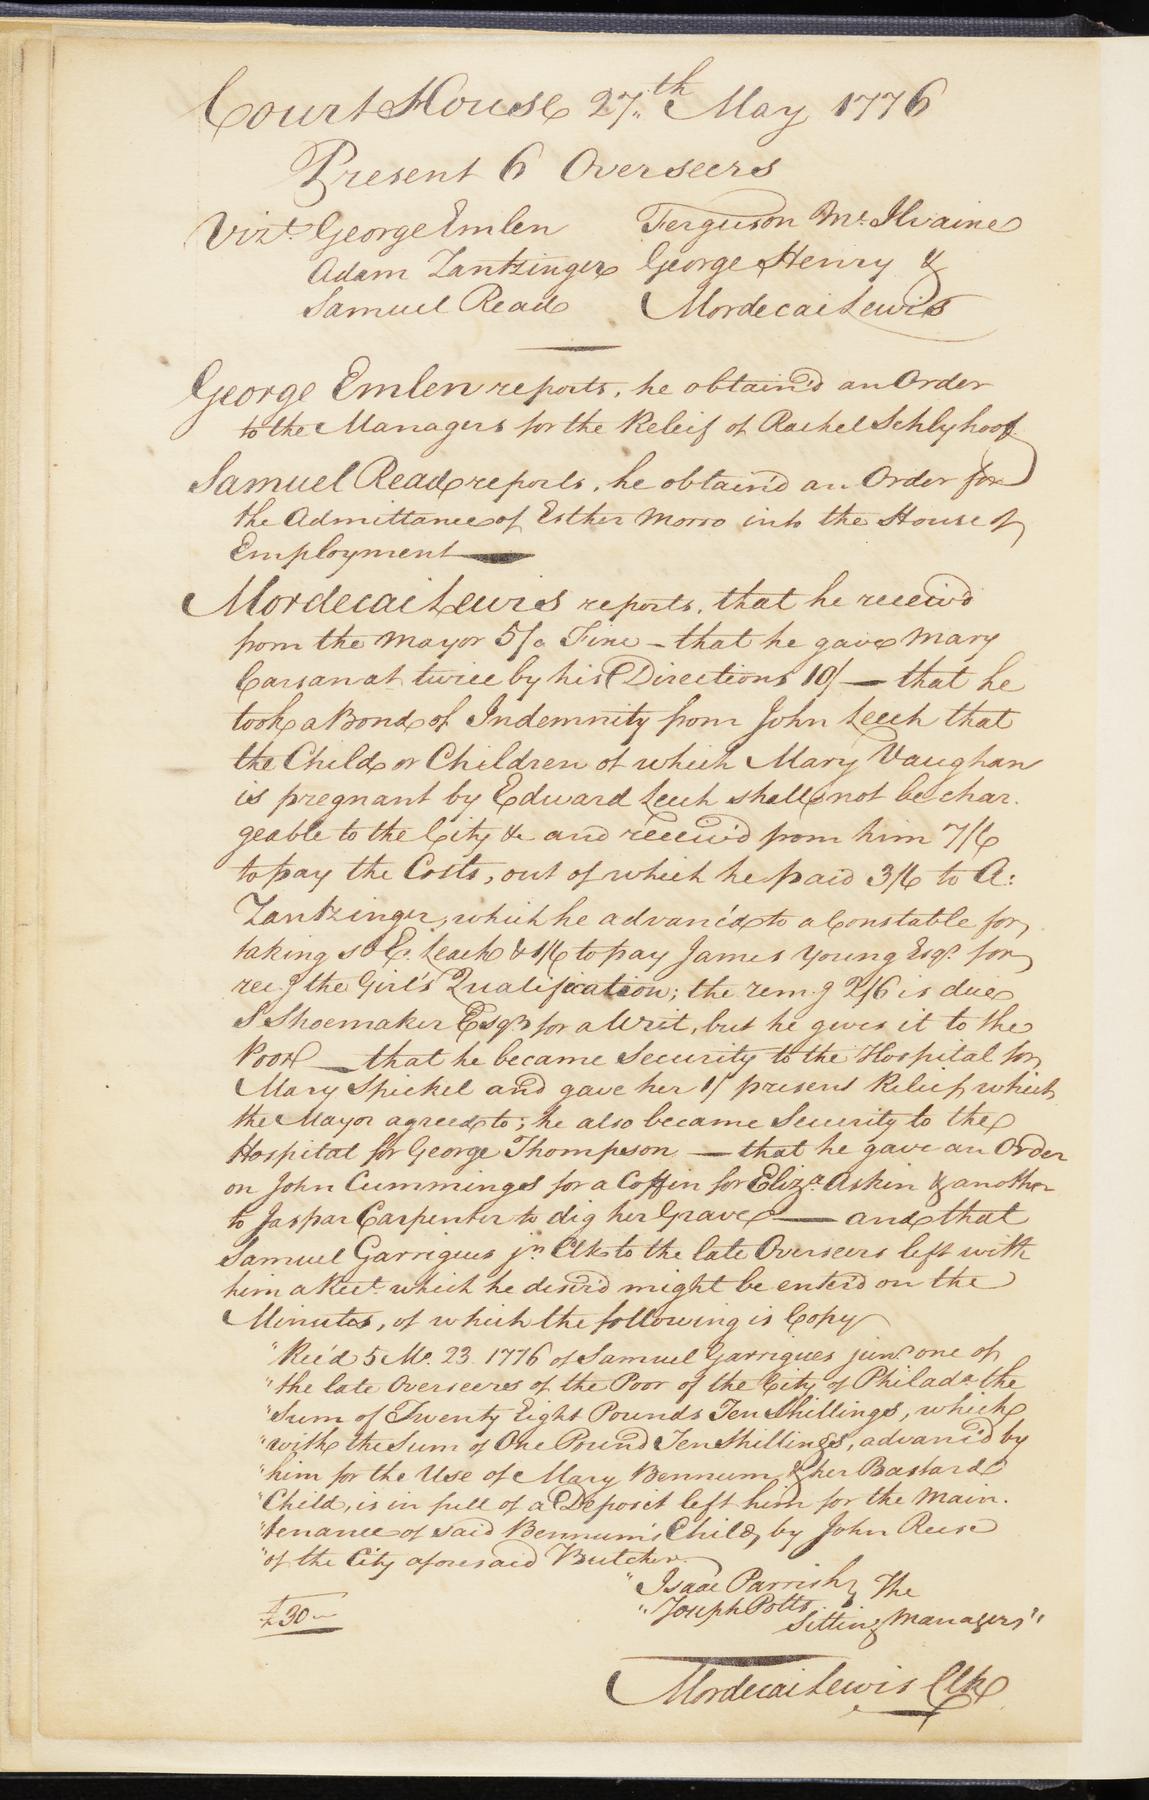 Court House 27.th May 1776
Present 6 Overseers
Vizt. George Emlen Ferguson Mc.Ilvaine
Adam Zantzinger George Henry &
Samuel Read Mordecai Lewis
George Emlen reports, he obtain'd an Order
to the Managers for the Releif of Rachel Schlyhoof
Samuel Read reports, he obtain'd an Order for
the Admittance of Esther Morro into the House of
Employment
Mordecai Lewis reports, that he receiv'd
from the Mayor 5/a Fine - that he gave Mary
Carsanat twice by his Directions 10/ — that he
took a Bond of Indemnity from John Leech that
the Child or Children of which Mary Vaughan
is pregnant by Edward Leech shall not be char.
geable to the City &c and receiv'd from him 7/6
to pay the Costs, out of which he paid 3/6 to A:
Zantzinger, which he advanc'd to a Constable for
taking sd E. Leech & 1/6 to pay James Young Esqr. for
recg the Girl's Qualification; the remg 2/6 is due
S Shoemaker Esqr for a Writ, but he gives it to the
Poor — that he became Security to the Hospital for
Mary Spickel and gave her 1/ present Relief which
the Mayor agreed to; he also became Security to the
Hospital for George Thompson — that he gave an Order
on John Cummings for a Coffin for Eliza. Askin & another
to Jaspar Carpenter to dig her Grave — and that
Samuel Garrigues jn Clk to the late Overseers left with
him a Rect. which he desir'd might be enter'd on the
Minutes, of which the following is Copy
"Rec'd 5 Mo. 23. 1776 of Samuel Garrigues junr one of
"the late Overseers of the Poor of the City of Philada. the
"Sum of Twenty Eight Pounds Ten Shillings, which
"with the Sum of One Pound Ten Shillings, advanc'd by
"him for the Use of Mary Bennum & her Bastard
"Child, is in full of a Deposit left him for the Main.
"tenance of said Bennum's Child, by John Reese
"of the City aforesaid Butcher.
"Isaac Parrish The
"Joseph Potts
£30 — Sitting Managers"
Mordecai Lewis Clk